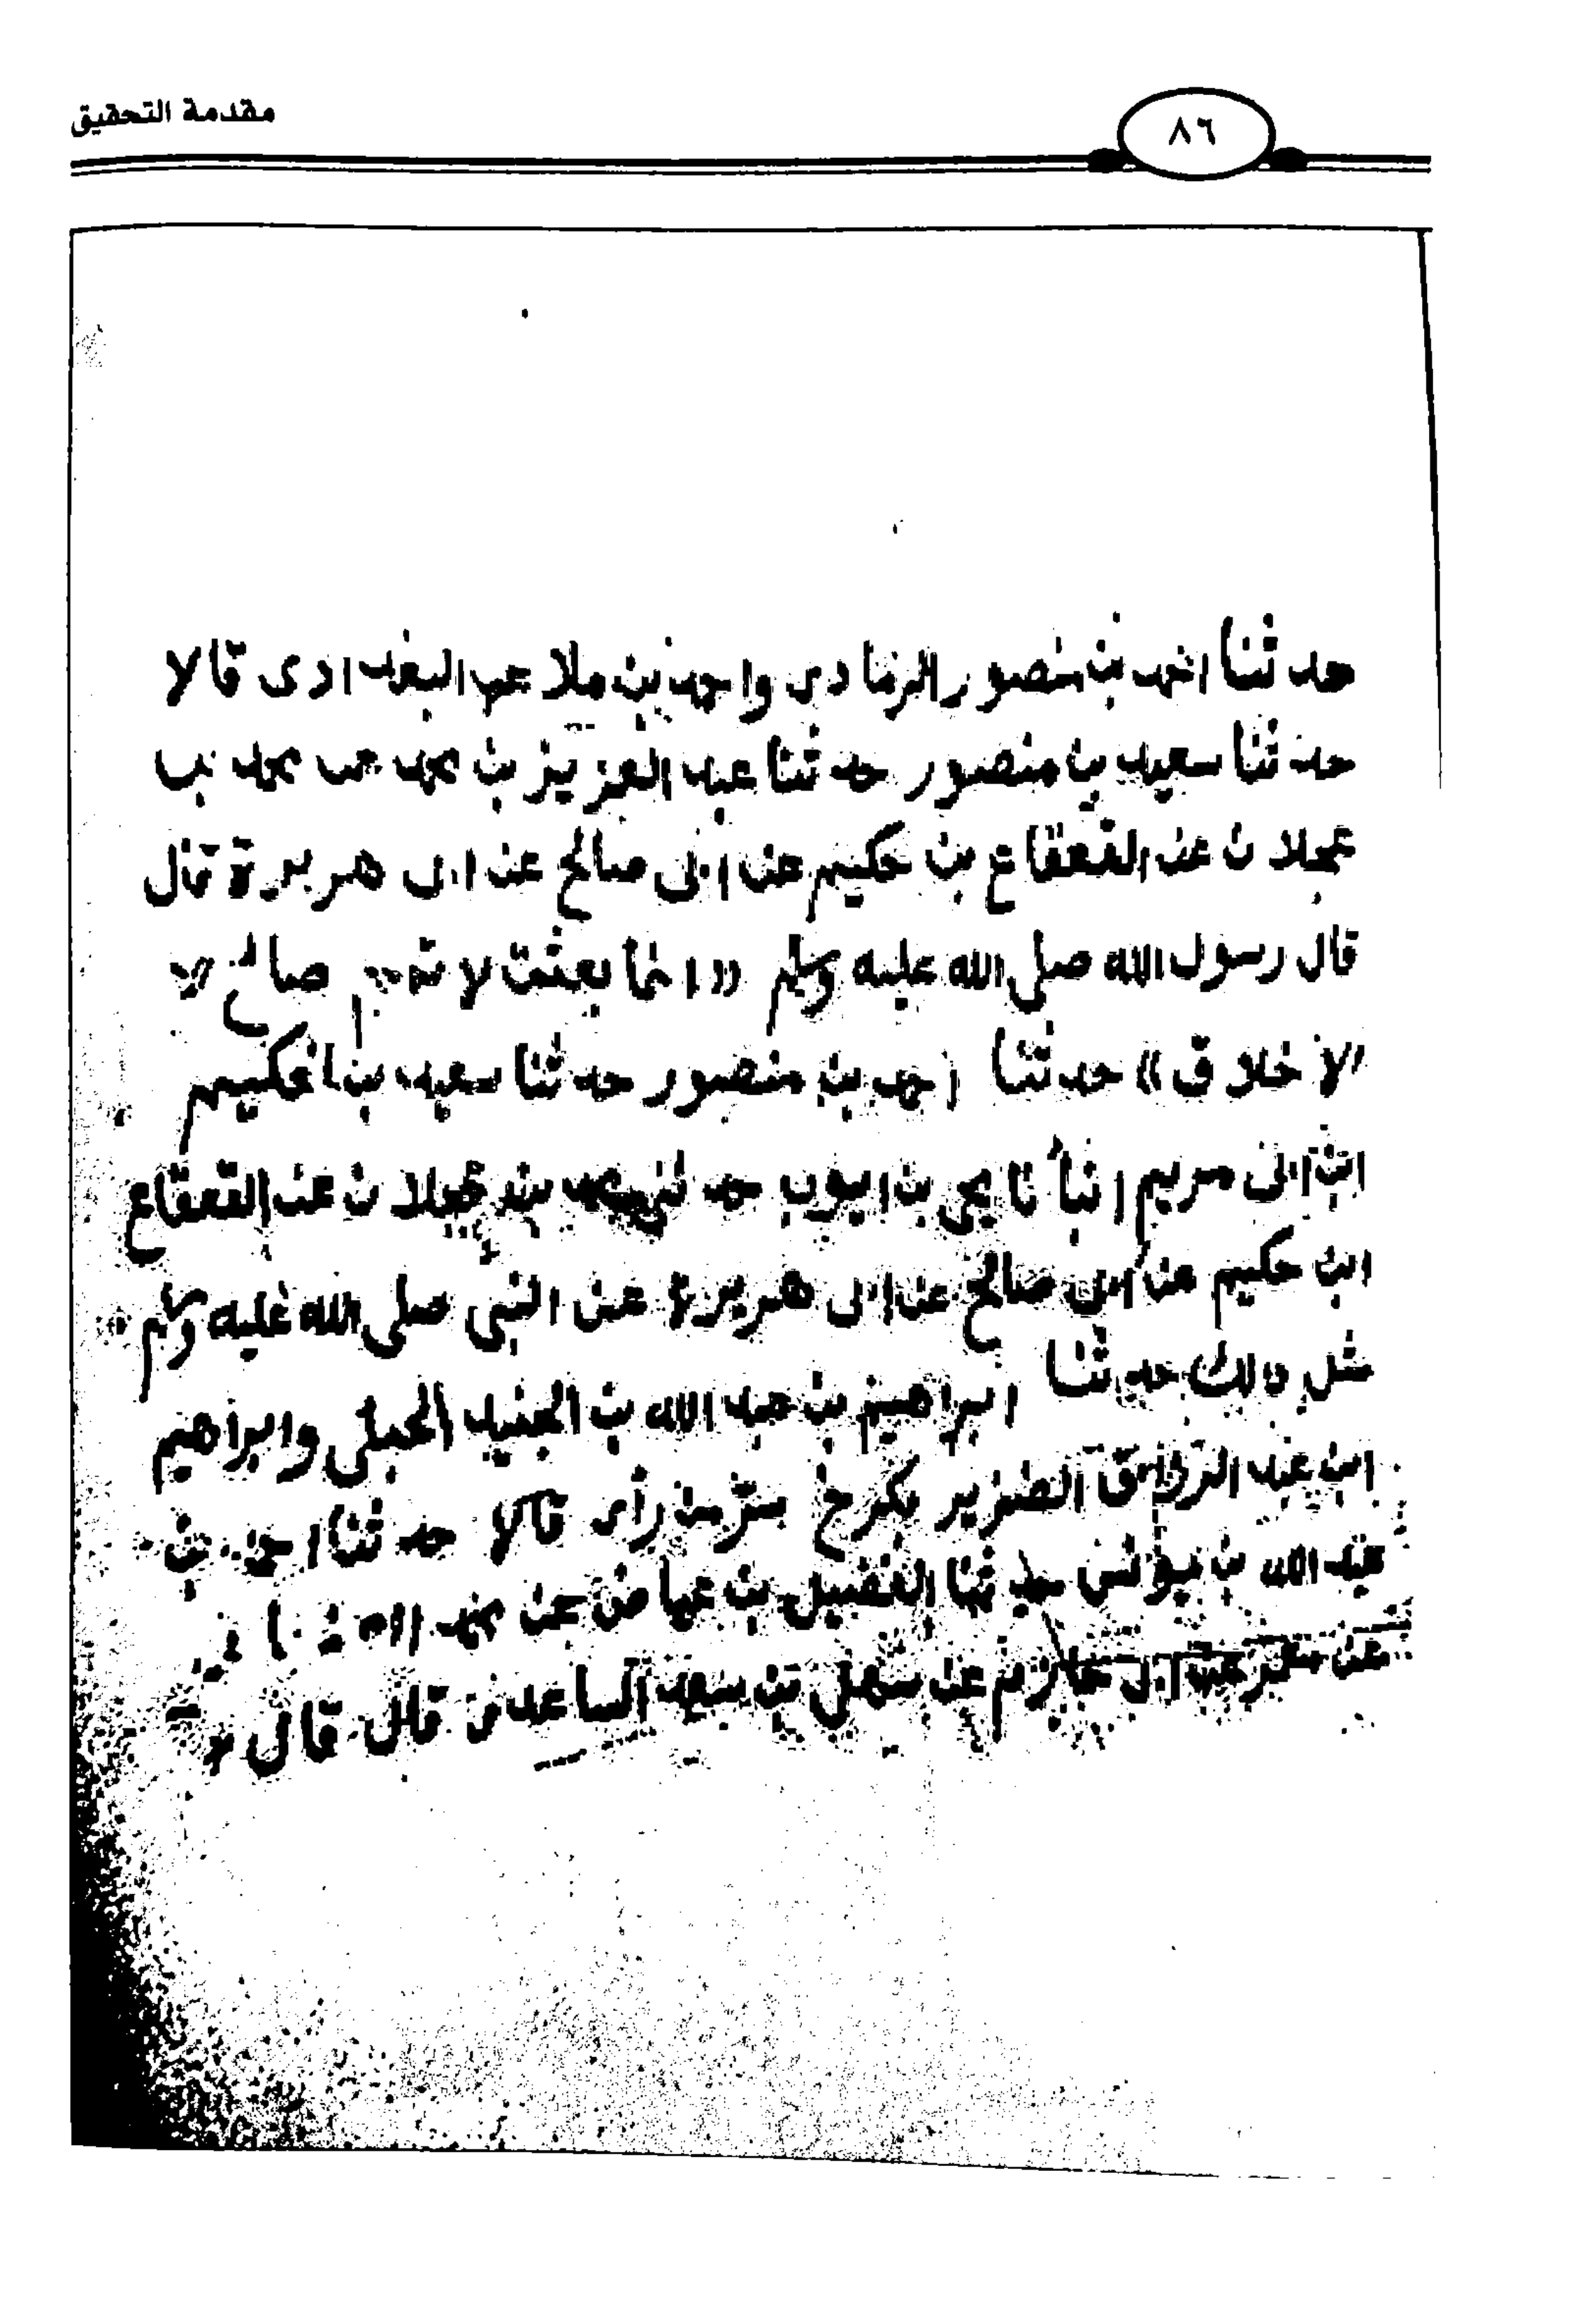 مقدمة التحقيق
٨٦
حدثنا احمد بن منصور الرمادى واحمد بن ملاعب البغدادى قالا
حدثنا سعيد بن منصور حدثنا عبد العزيز بن محمد عن محمد بن
عجلان عن القعقاع بن حكيم عن ابى صالح عن ابى هريرة قال
قال رسول الله صلى الله عليه وسلم «انما بعثت لاتمم صالح
الاخلاق» حدثنا احمد بن منصور حدثنا سعيد بن الحكيم
ابن ابى مريم انبأنا يحيى بن ايوب حدثنى محمد بن عجلان عن القعقاع
ابن حكيم عن ابى صالح عن ابى هريرة عن النبى صلى الله عليه وسلم
مثل ذالك حدثنا ابراهيم بن عبد الله بن الجنيد الختلى وابراهيم
ابن عبد الرزاق الضرير بكرخ سر من رأى قالا حدثنا احمد بن
عبد الله بن يونس حدثنا الفضيل بن عياض عن محمد
عن معمر عن ابى حازم عن سهل بن سعد الساعدى قال قال